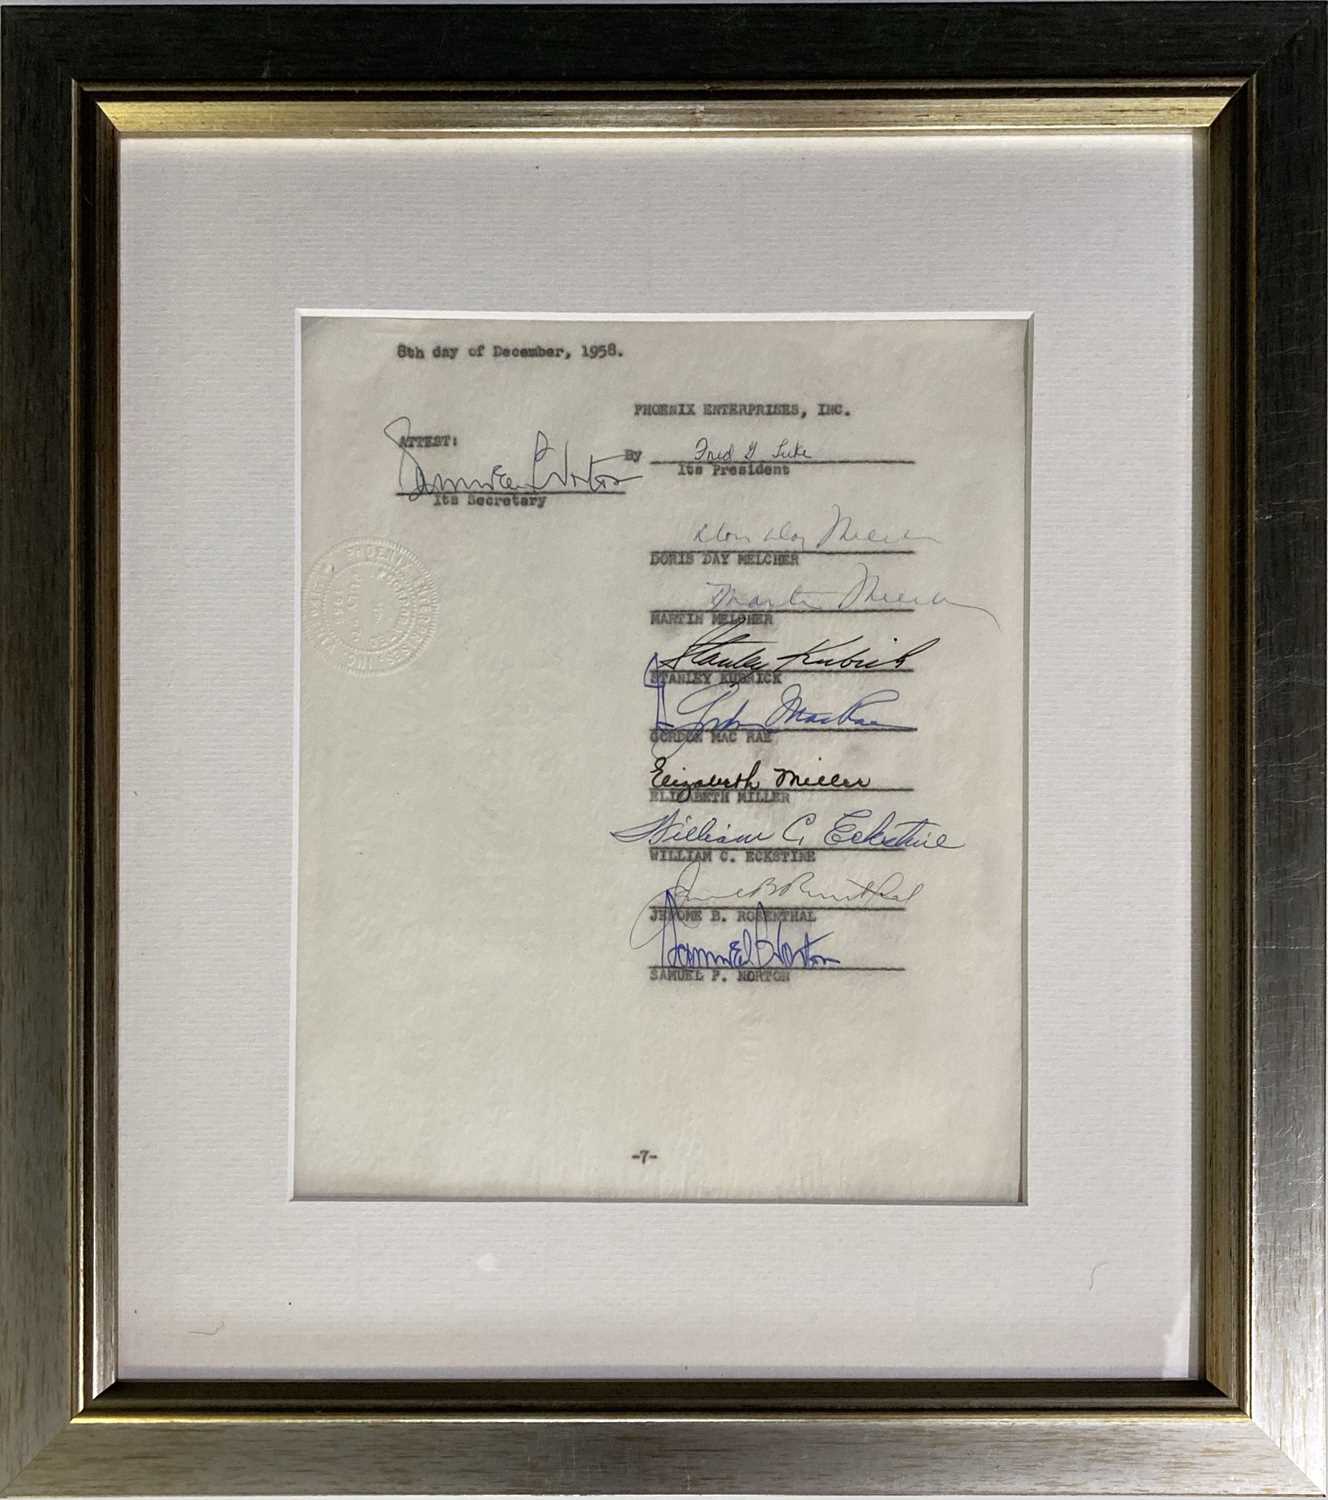 8th day of December, 1958.
PHOENIX ENTERPRISES, INC.
ATTEST:
By Fred G
Its President
Samuel P Norton
Its Secretary
Doris Day Melcher
DORIS DAY MELCHER
Martin Melcher
MARTIN MELCHER
Stanley Kubrick
STANLEY KUBRICK
Gordon MacRae
GORDON MAC RAE
Elizabeth Miller
ELIZABETH MILLER
William C. Eckstine
WILLIAM C. ECKSTINE
Jerome B Rosenthal
JEROME B. ROSENTHAL
Samuel P Norton
SAMUEL P. NORTON
-7-